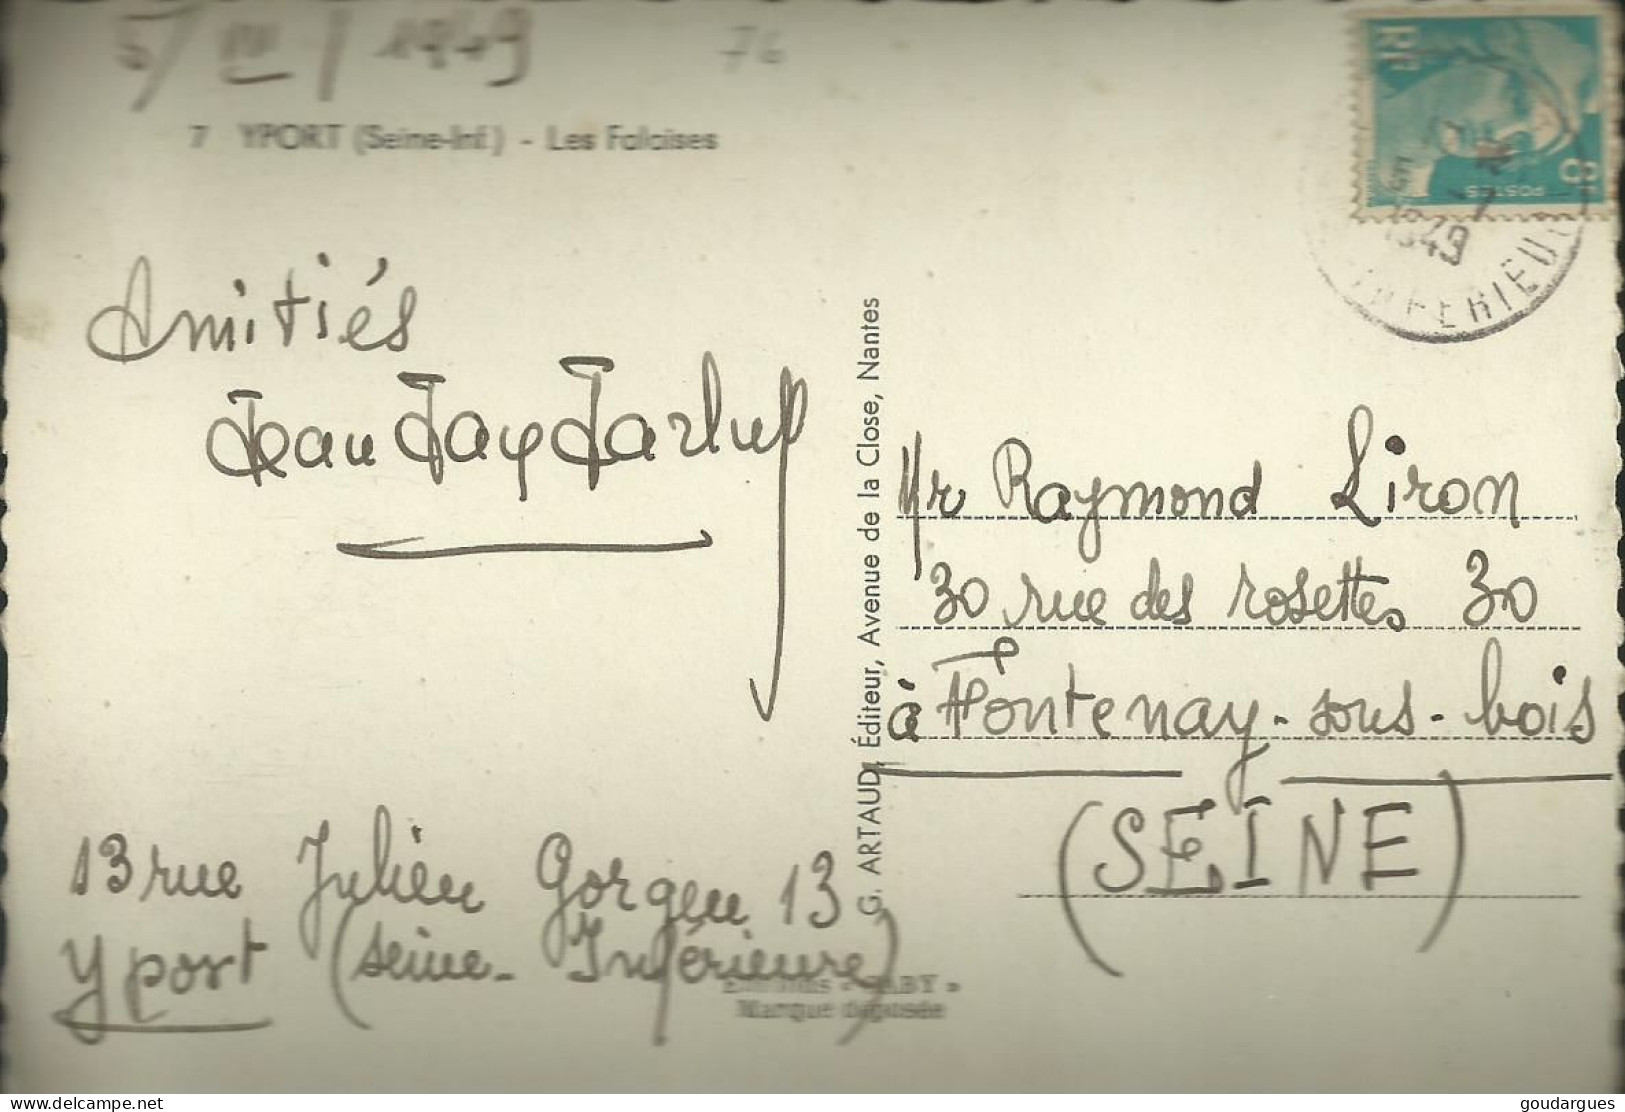 5/IV/1949
76
7 YPORT (Seine-Inf.) - Les Falaises
RF
POSTES
8
1949
INFERIEU
Amitiés
Jean
G. ARTAUD, Éditeur, Avenue de la Close, Nantes
Mr Raymond Liron
30 rue des rosettes 30
à Fontenay-sous-bois
(SEINE)
13 rue Julien Gorgeu 13
Yport (seine-Inférieure)
Editions « GABY »
Marque déposée
delcampe.net
goudargues